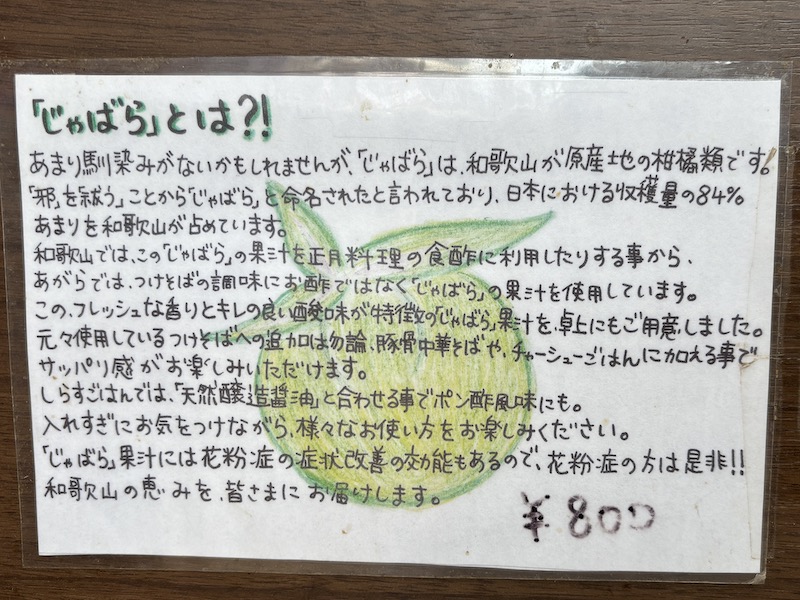 「じゃばら」とは?!
あまり馴染みがないかもしれませんが、「じゃばら」は、和歌山が原産地の柑橘類です。
「邪」を祓う」ことから「じゃばら」と命名されたと言われており、日本における収穫量の84%
あまりを和歌山が占めています。
和歌山では、この「じゃばら」の果汁を正月料理の食酢に利用したりする事から、
あがらでは、つけそばの調味にお酢ではなく「じゃばら」の果汁を使用しています。
この、フレッシュな香りとキレの良い酸味が特徴の「じゃばら」果汁を、卓上にもご用意しました。
元々使用しているつけそばへの追加は勿論、豚骨中華そばや、チャーシューごはんに加える事で
サッパリ感がお楽しみいただけます。
しらすごはんでは、「天然醸造醤油」と合わせる事でポン酢風味にも。
入れすぎにお気をつけながら、様々なお使い方をお楽しみください。
「じゃばら」果汁には花粉症の症状改善の効能もあるので、花粉症の方は是非!!
和歌山の恵みを、皆さまにお届けします。
¥800